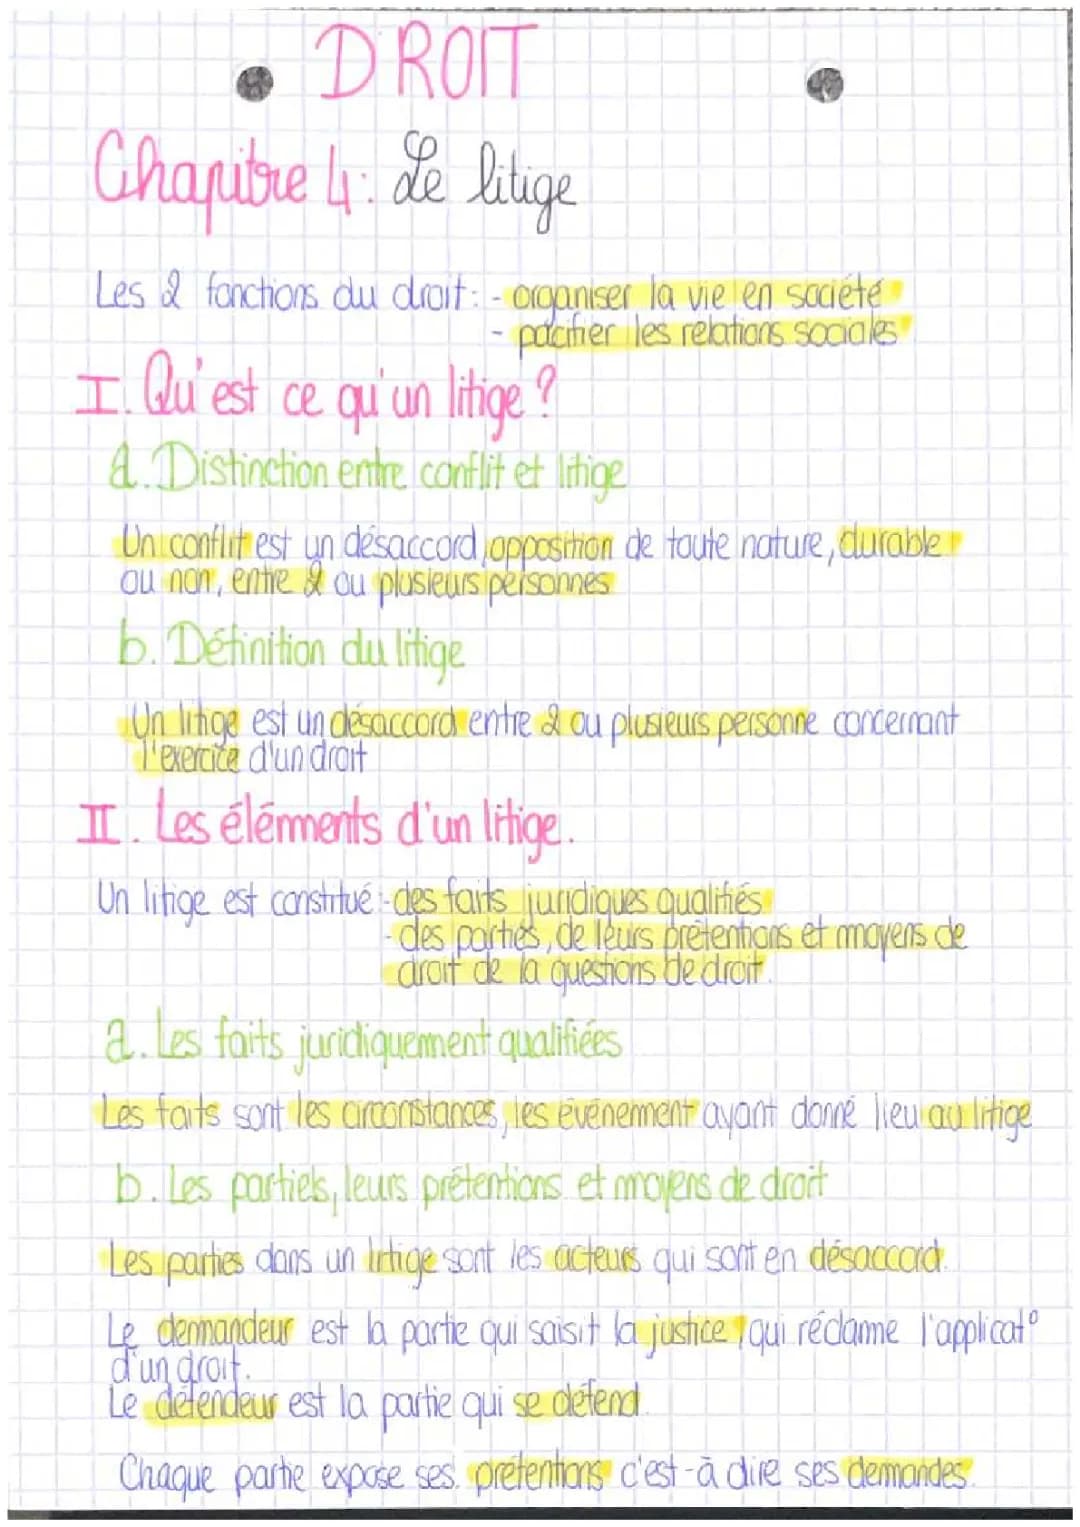 DROIT
Chapitre 4: Le litige
Les 2 fonctions du droit: - organiser la vie en société
- pacifier les relations sociales
I. Qu'est ce qu'un litige ?
a. Distinction entre conflit et litige
Un conflit est un désaccord, opposition de toute nature, durable
ou non, entre 2 ou plusieurs personnes
b. Définition du litige
Un litige est un désaccord entre 2 ou plusieurs personne concernant
l'exercice d'un droit
II. Les éléments d'un litige.
Un litige est constitué: - des faits juridiques qualifiés
- des parties, de leurs prétentions et moyens de
droit de la questions de droit.
a. Les faits juridiquement qualifiées
Les faits sont les circonstances, les évènement ayant donné lieu au litige
b. Les partiels, leurs prétentions et moyens de droit
Les parties dans un litige sont les acteurs qui sont en désaccord.
Le demandeur est la partie qui saisit la justice, qui réclame l'applicat°
d'un droit.
Le défendeur est la partie qui se défend.
Chaque partie expose ses. prétentions c'est-à dire ses demandes.